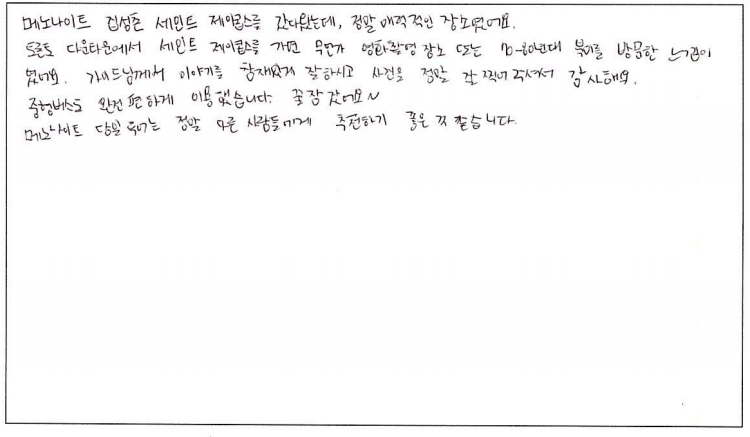 메노나이트 집성촌 세인트 제이콥스를 갔다왔는데, 정말 매력적인 장소였어요.
토론토 다운타운에서 세인트 제이콥스를 가면 무언가 영화촬영 장소 또는 북미를 방문한 느낌이
었어요. 가이드님께서 이야기를 참 재밌게 잘하시고 사진을 정말 잘 찍어 주셔서 감사해요.
중형버스도 완전 편하게 이용했습니다. 꿀잠 잤어요~
메노나이트 당일 투어는 정말 다른 사람들에게 추천하기 좋은 것 같습니다.